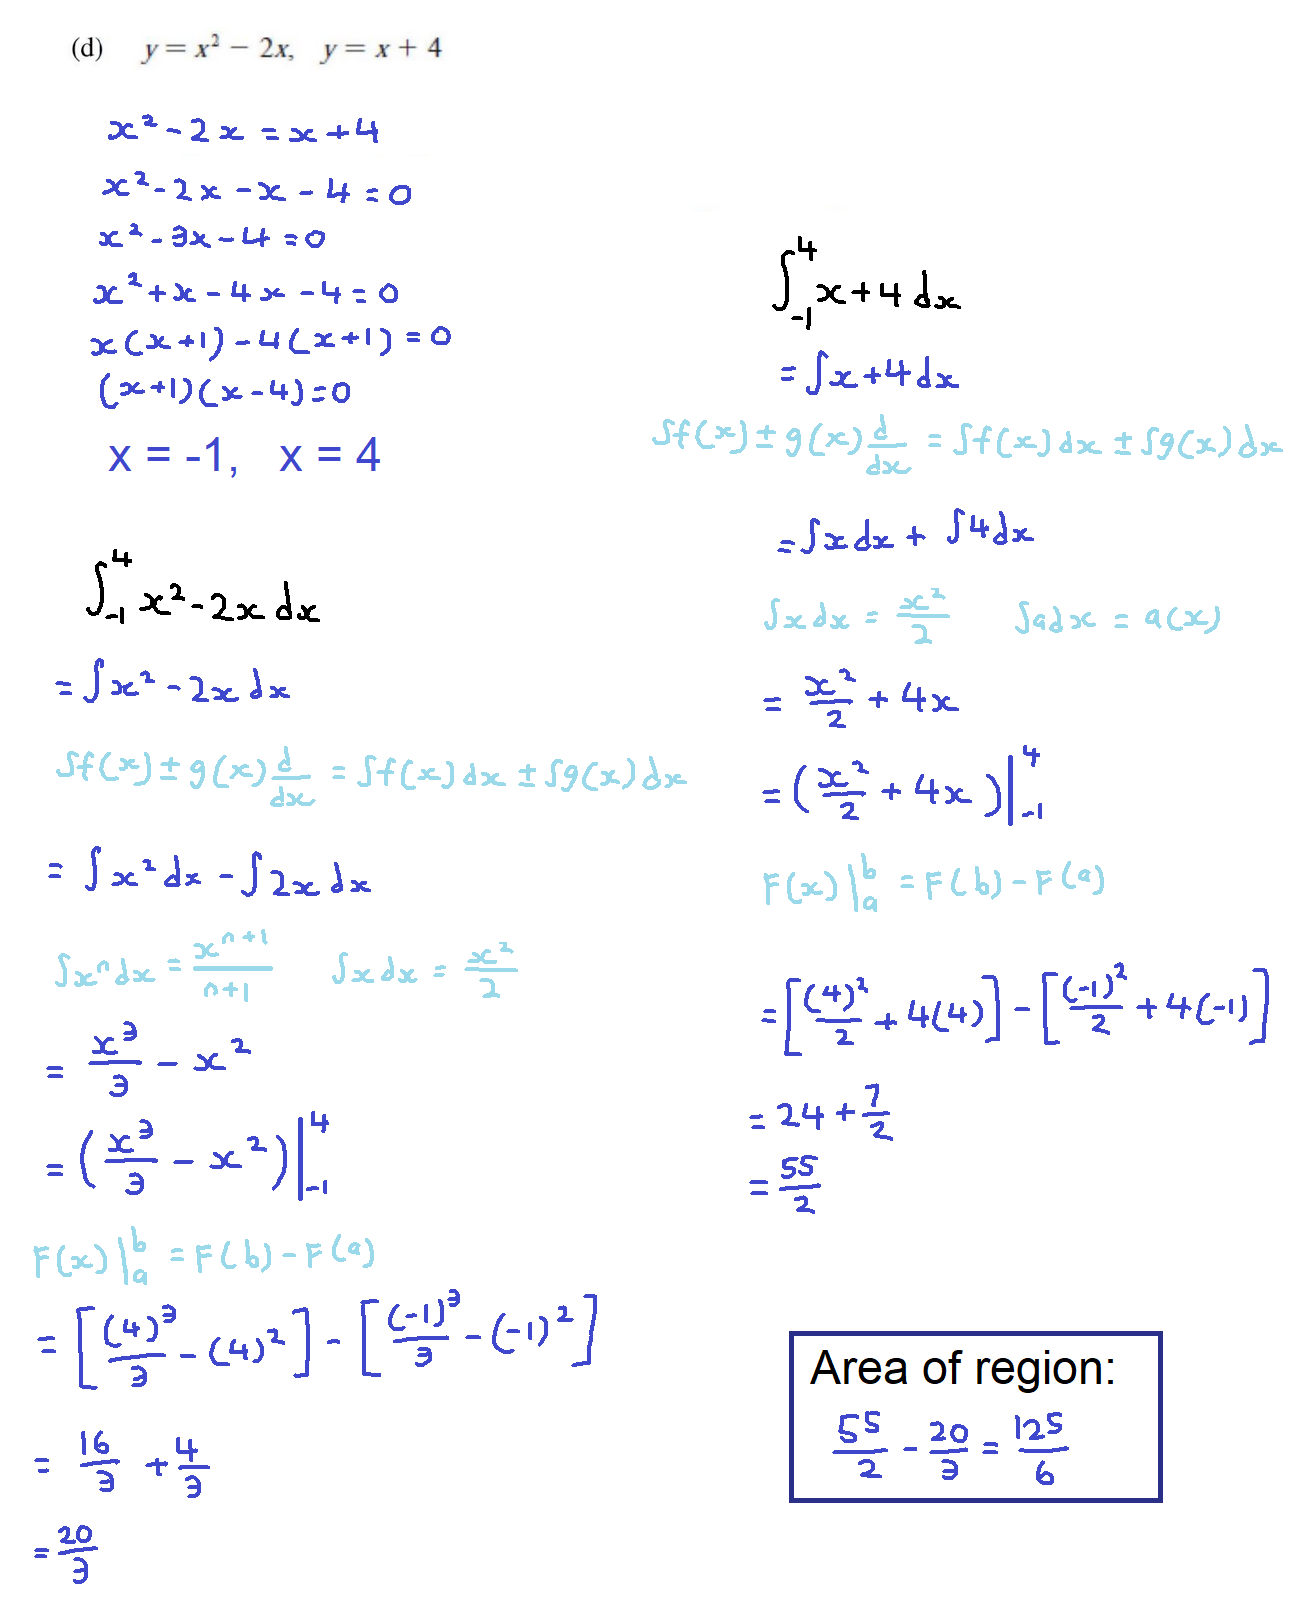 (d) y = x² − 2x, y = x + 4
x² - 2x = x + 4
x² - 2x - x - 4 = 0
x² - 3x - 4 = 0
x² + x - 4x - 4 = 0
x(x+1) - 4(x+1) = 0
(x+1)(x-4) = 0
x = -1, x = 4
∫₋₁⁴ x² - 2x dx
= ∫x² - 2x dx
∫f(x) ± g(x) d/dx = ∫f(x) dx ± ∫g(x) dx
= ∫x² dx - ∫2x dx
∫xⁿ dx = xⁿ⁺¹/n+1 ∫x dx = x²/2
= x³/3 - x²
= (x³/3 - x²)|₋₁⁴
F(x)|ₐᵇ = F(b) - F(a)
= [(4)³/3 - (4)²] - [(-1)³/3 - (-1)²]
= 16/3 + 4/3
= 20/3
∫₋₁⁴ x + 4 dx
= ∫x + 4 dx
∫f(x) ± g(x) d/dx = ∫f(x) dx ± ∫g(x) dx
= ∫x dx + ∫4 dx
∫x dx = x²/2 ∫a dx = a(x)
= x²/2 + 4x
= (x²/2 + 4x)|₋₁⁴
F(x)|ₐᵇ = F(b) - F(a)
= [(4)²/2 + 4(4)] - [(-1)²/2 + 4(-1)]
= 24 + 7/2
= 55/2
Area of region:
55/2 - 20/3 = 125/6